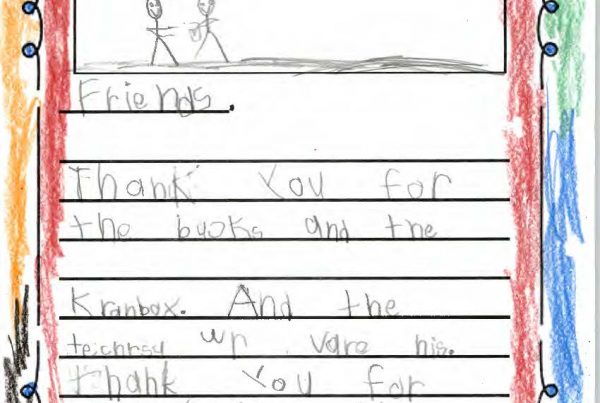 Friends.
Thank You for
the books and the
Kranbox. And the
techrsu wr vare nis.
Thank You for